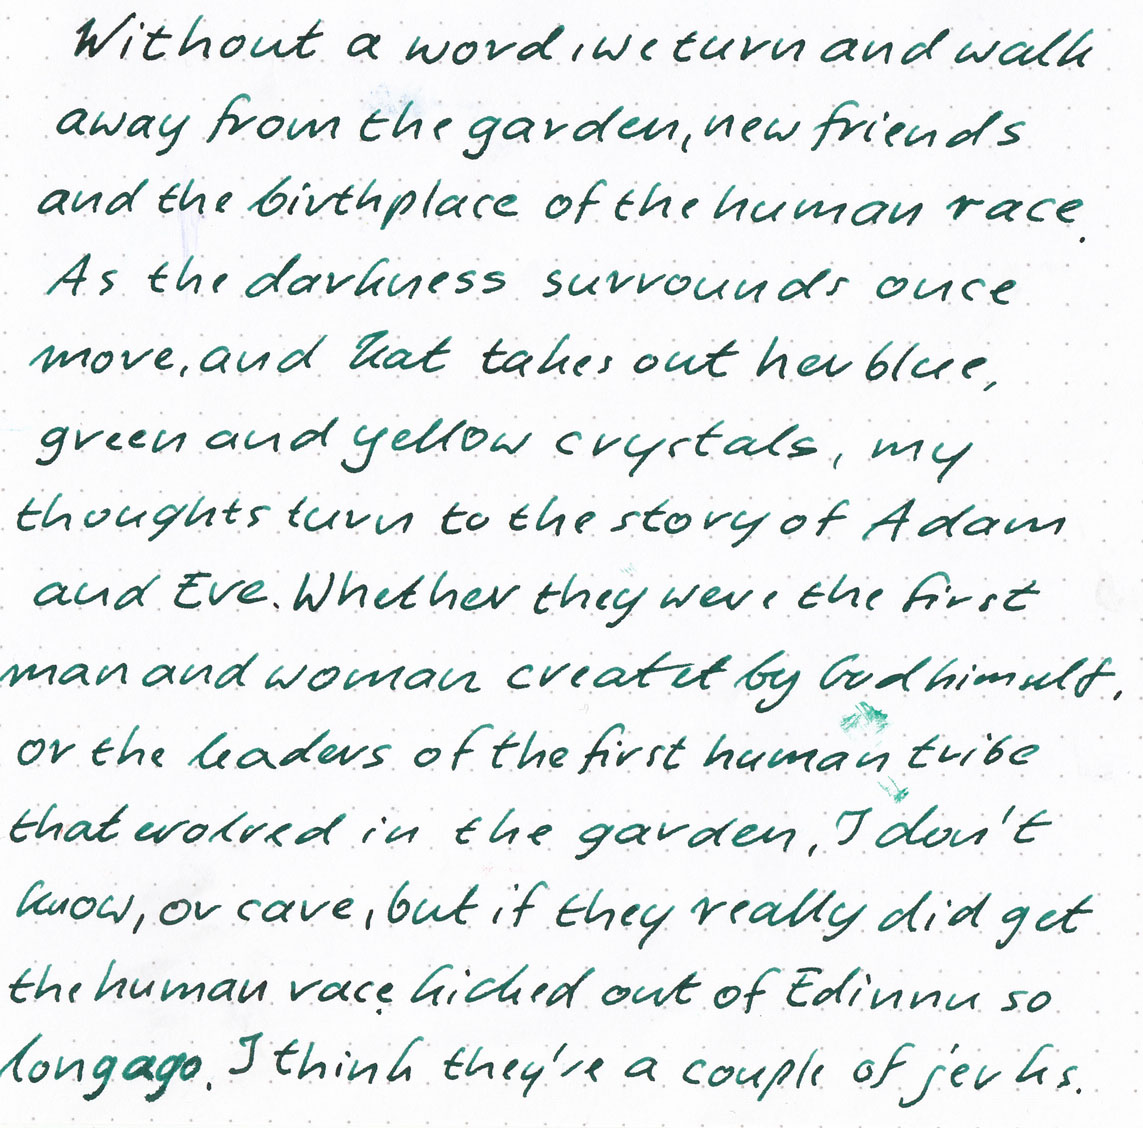 Without a word, we turn and walk
away from the garden, new friends
and the birthplace of the human race.
As the darkness surrounds once
more, and Kat takes out her blue,
green and yellow crystals, my
thoughts turn to the story of Adam
and Eve. Whether they were the first
man and woman createt by God himself,
or the leaders of the first human tribe
that evolved in the garden, I don't
know, or cave, but if they really did get
the human race kicked out of Edinnu so
long ago, I think they're a couple of jerks.